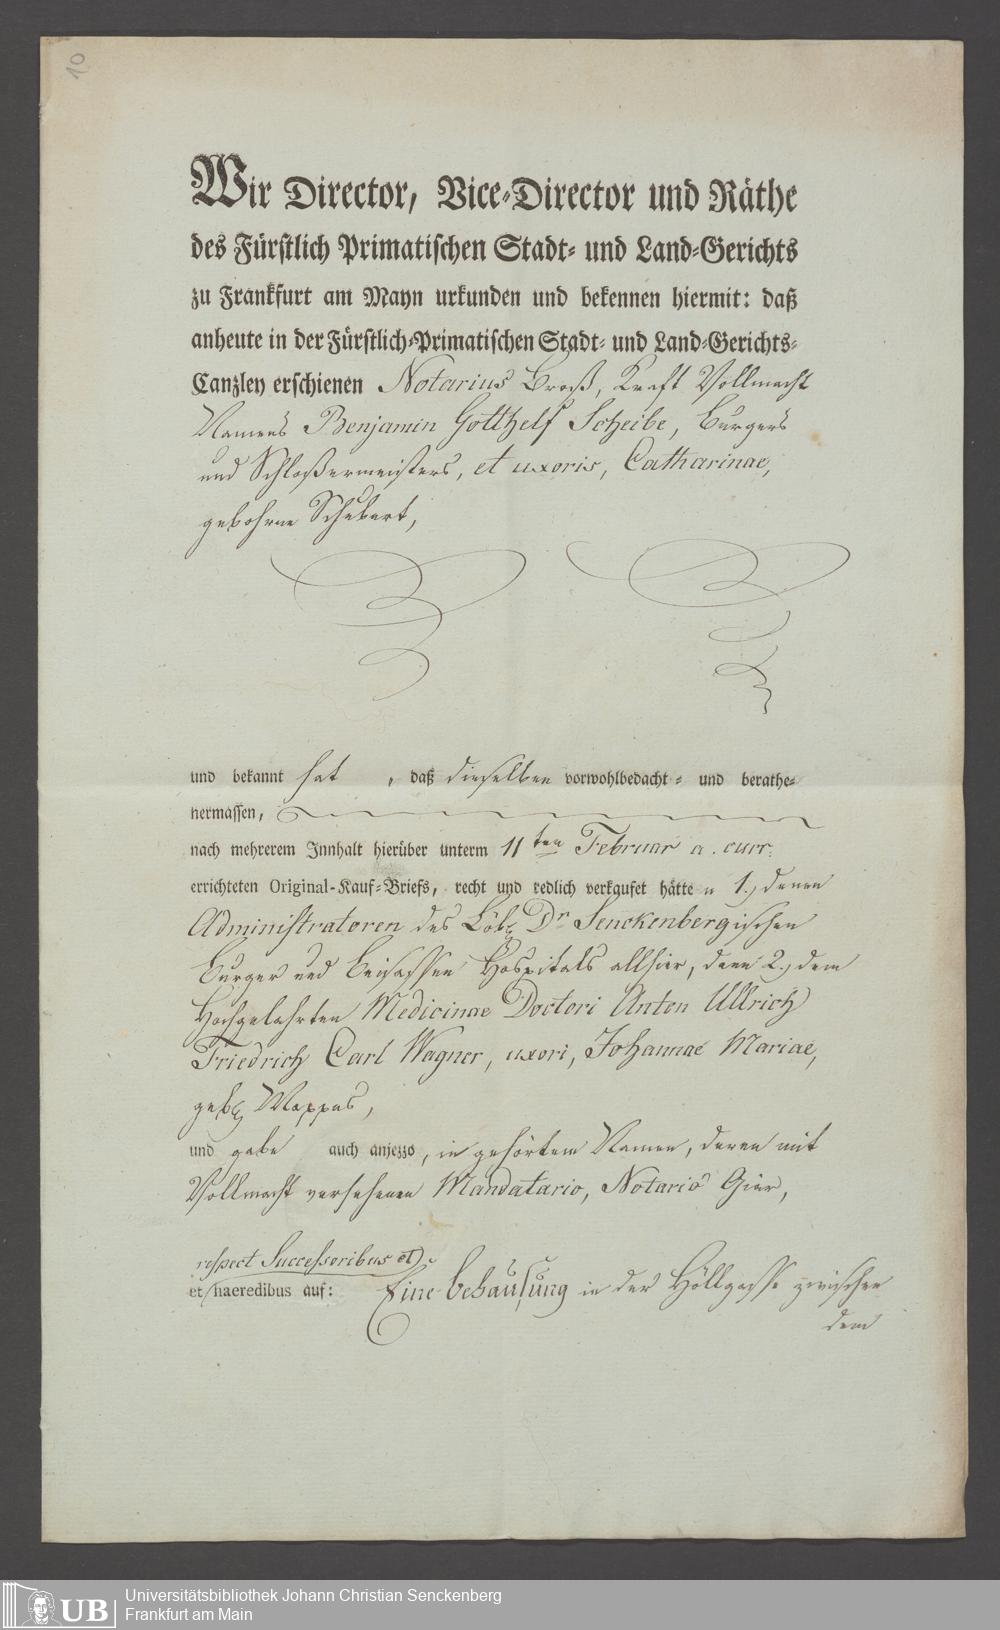 10
Wir Director, Vice-Director und Räthe
des Fürstlich Primatischen Stadt- und Land-Gerichts
zu Frankfurt am Mayn urkunden und bekennen hiermit: daß
anheute in der Fürstlich-Primatischen Stadt- und Land-Gerichts-
Canzley erschienen Notarius Broß, Kraft Vollmacht
Namens Benjamin Gotthelf Scheibe, Burgers
und Schloßermeisters, et uxoris, Catharinae,
gebohrne Schubart,
und bekannt hat, daß dieselben vorwohlbedacht- und berathe-
nermassen,
nach mehrerem Innhalt hierüber unterm 11ten Februar a. curr.
errichteten Original-Kauf-Briefs, recht und redlich verkaufet hätten 1.) denen
Administratoren des Löbl. Dr. Senckenbergischen
Burger und Beisassen Hospitals allhier, denn 2.) dem
Hochgelahrten Medicinae Doctori Anton Ullrich
Friedrich Carl Wagner, uxori, Johannae Mariae,
geb. Mappes,
und gabe auch anjezzo, in gehörtem Namen, deren mit
Vollmacht versehenen Mandatario, Notario Gier,
respect Successoribus et
et haeredibus auf: Eine Behausung in der Höllgasse zwischen
dem
UB
Universitätsbibliothek Johann Christian Senckenberg
Frankfurt am Main